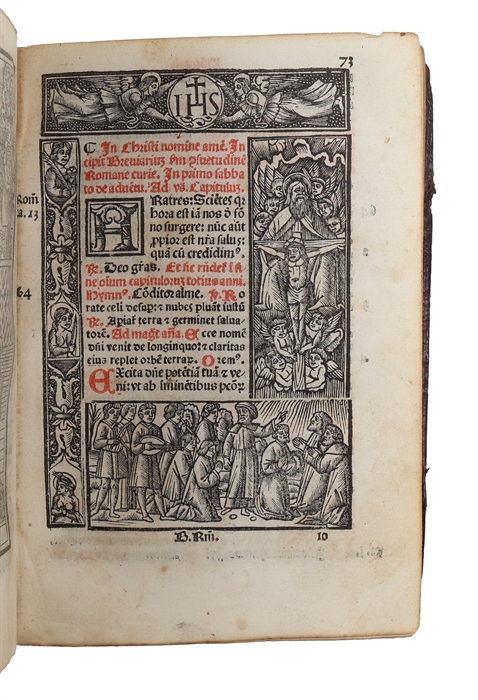 73
IHS
C In Christi nomine amē. In
cipit Breuiariū ẜm ↄsuetudinē
Romane curie. In primo sabba
to de aduētu. Ad vs. Capitulū.
FRatres: Sciētes q
hora est iā nos d̄ sō
no surgere: nūc aūt
ꝓpior est nr̄a salus:
quā cū credidimꝰ.
℟. Deo grās. Et sic
ne oīum capitulorū totius anni.
Hymnꝰ. Cōditor alme. ℣. Ro
rate celi desuꝑ: ⁊ nubes pluāt iustū
℟. Aꝑiat̄ terra ⁊ germinet salua
torē. Ad magt̄ aña. Ecce nomē
dn̄i venit de longinquo: ⁊ claritas
eius replet orbē terraꝝ. Oremꝰ.
Excita dn̄e potētiā tuā ⁊ ve
ni: vt ab imīnētibus pctōꝝ
Rom̄
a. 13
64
B. Rm̄. 10